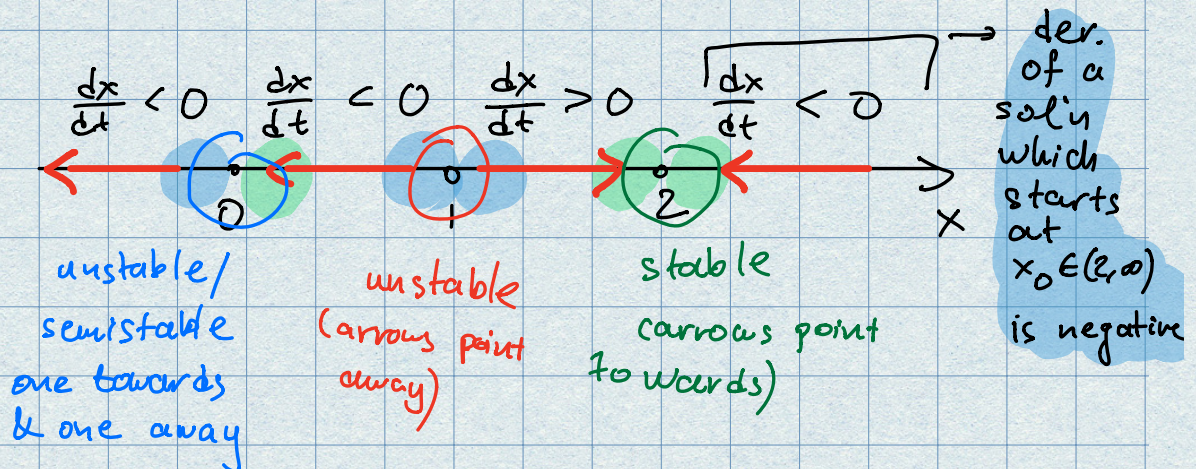 dx/dt < 0 dx/dt < 0 dx/dt > 0 dx/dt < 0 → der.
of a
sol'n
which
starts
at
x₀ ∈ (2,∞)
is negative
0 1 2 x
unstable/
semistable
one towards
& one away
unstable
(arrows point
away)
stable
(arrows point
towards)